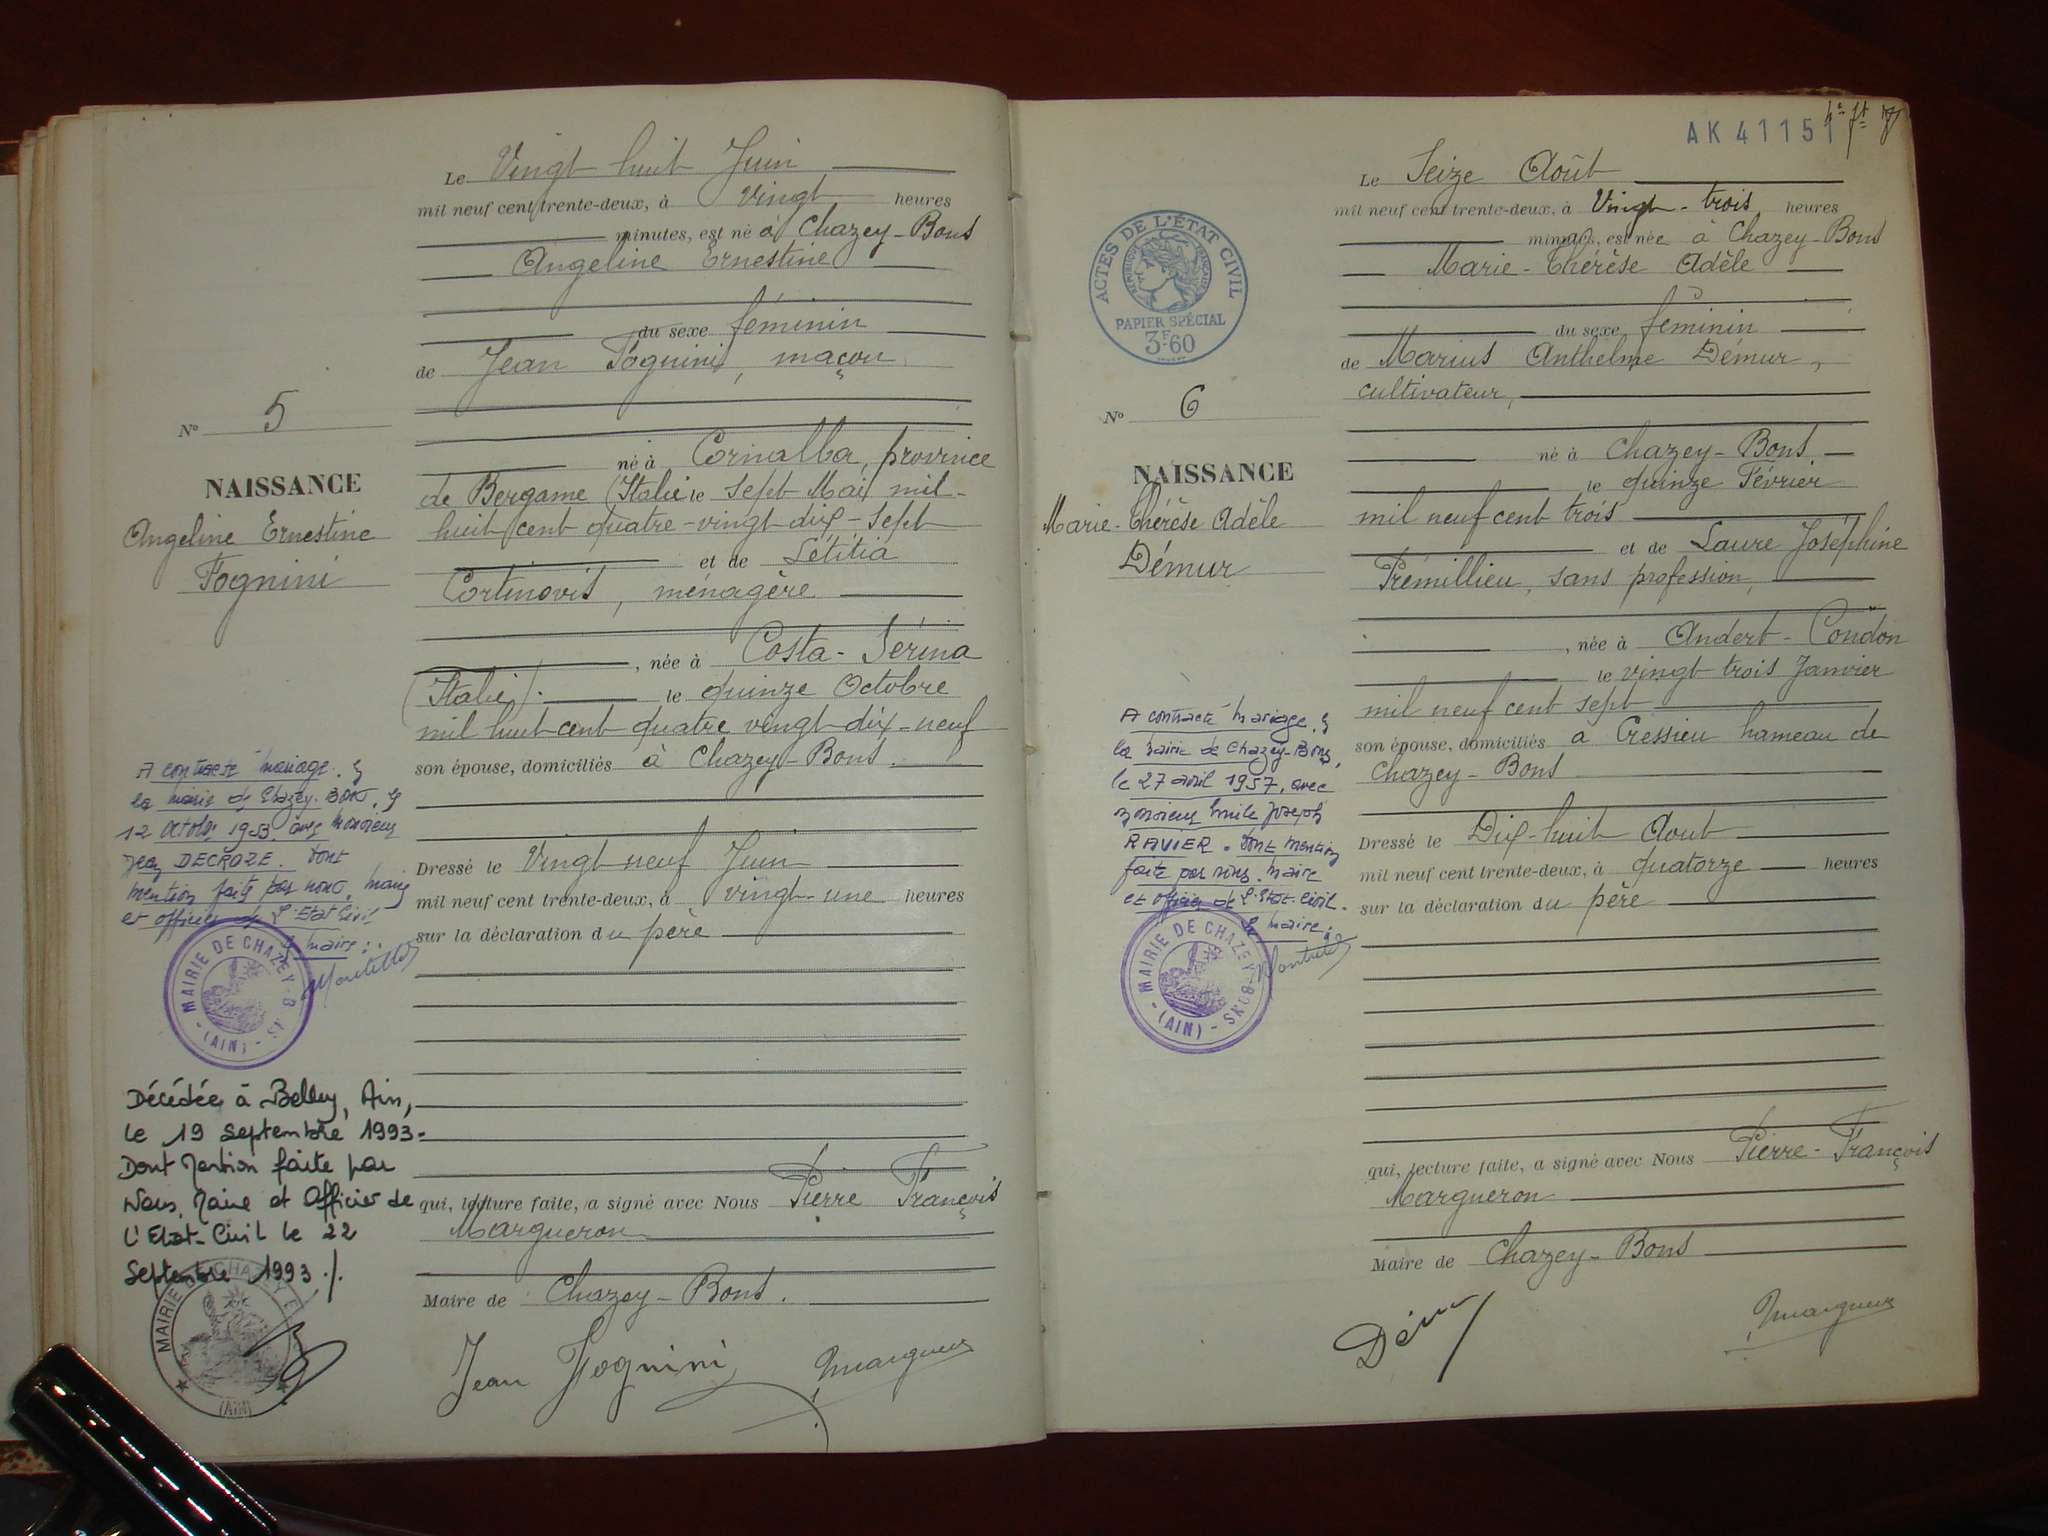 Le Vingt huit Juin
mil neuf cent trente-deux, à Vingt heures
minutes, est né à Chazey-Bons
Angeline Ernestine
du sexe féminin
de Jean Fognini, maçon
né à Cornalba, province
de Bergame (Italie le sept Mai mil
huit cent quatre-vingt dix-sept
et de Létitia
Cortinovis, ménagère
, née à Costa-Sérina
(Italie). le quinze Octobre
mil huit cent quatre vingt dix-neuf
son épouse, domiciliés à Chazey-Bons.
Dressé le Vingt neuf Juin
mil neuf cent trente-deux, à vingt-une heures
sur la déclaration du père
qui, lecture faite, a signé avec Nous Pierre François
Margueron
Maire de Chazey-Bons.
Jean Fognini
Margueron
N° 5
NAISSANCE
Angeline Ernestine
Fognini
A contracté mariage à
la mairie de Chazey-Bons, le
12 octobre 1953 avec Monsieur
Jean DECROZE. Dont
mention faite par nous, maire
et officier de l'Etat Civil
Le maire:
MAIRIE DE CHAZEY-BONS
(AIN)
Décédée à Belley, Ain,
le 19 Septembre 1993.
Dont Mention faite par
Nous, Maire et Officier de
L'Etat-Civil le 22
Septembre 1993 ./.
MAIRIE DE CHAZEY
(AIN)
AK 41151
Le Seize Août
mil neuf cent trente-deux, à Vingt-trois heures
minutes, est née à Chazey-Bons
Marie-Thérèse Adèle
du sexe féminin
de Marius Anthelme Démur,
cultivateur,
né à Chazey-Bons.
le quinze Février
mil neuf cent trois
et de Laure Joséphine
Prémillieu, sans profession,
, née à Andert-Condon
le vingt trois Janvier
mil neuf cent sept
son épouse, domiciliés à Cressieu hameau de
Chazey-Bons
Dressé le Dix-huit Aout
mil neuf cent trente-deux, à quatorze heures
sur la déclaration du père
qui, lecture faite, a signé avec Nous Pierre-François
Margueron
Maire de Chazey-Bons
Démur
Margueron
ACTES DE L'ÉTAT CIVIL
RÉPUBLIQUE FRANÇAISE
PAPIER SPÉCIAL
3F60
N° 6
NAISSANCE
Marie-Thérèse Adèle
Démur
A contracté mariage à
la mairie de Chazey-Bons,
le 27 avril 1957, avec
Monsieur Emile Joseph
RAVIER. Dont mention
faite par nous, maire
et officier de l'Etat-Civil.
Le maire:
MAIRIE DE CHAZEY-BONS
(AIN)